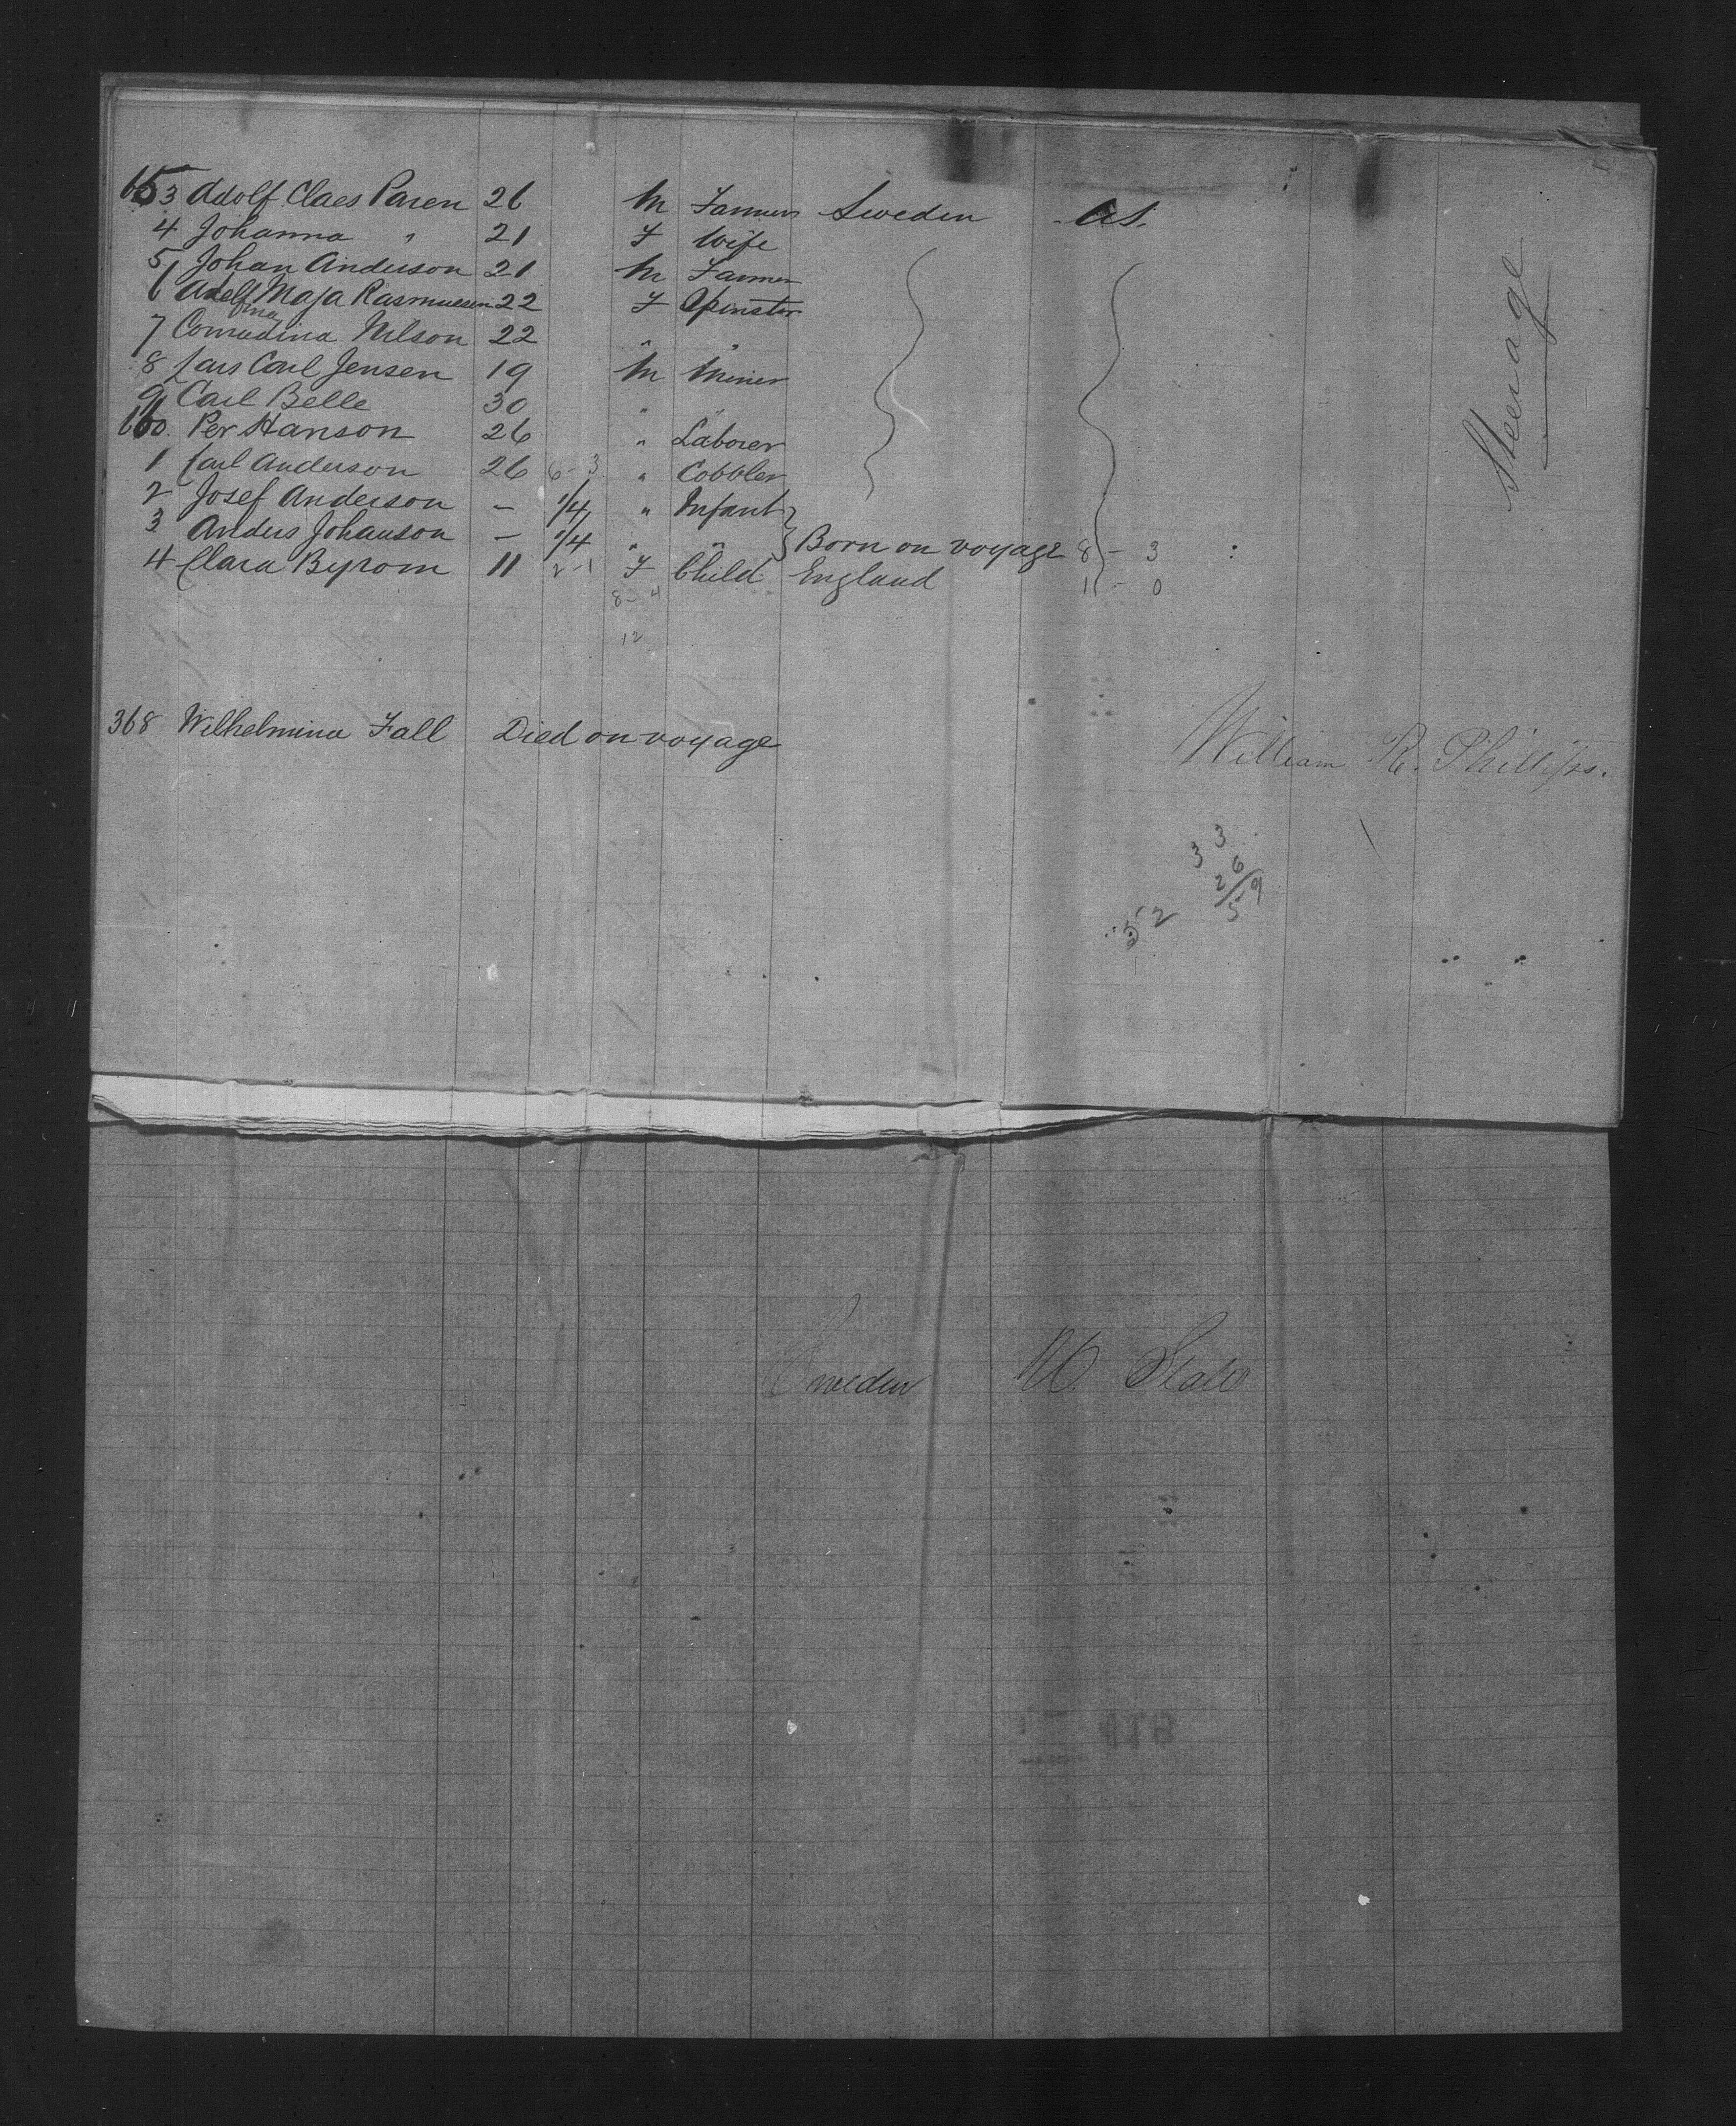 653 Adolf Claes Paren 26 M Farmer Sweden U.S.
4 Johanna " 21 F Wife
5 Johan Anderson 21 M Farmer
6 Adolfina Maja Rasmussen 22 F Spinster
7 Conradina Nilson 22 " "
8 Lars Carl Jensen 19 M Miner
9 Carl Belle 30 " "
660. Per Hanson 26 " Laborer
1 Carl Anderson 26 6-3 " Cobbler
2 Josef Anderson - 1/4 " Infant
3 Anders Johanson - 1/4 " " } Born on voyage 8 - 3
4 Clara Byrom 11 2-1 F Child England 11 - 0
8-4
12
Steerage
368 Wilhelmina Fall Died on voyage
William R. Phillips.
33
26
59
52
Sweden U. States